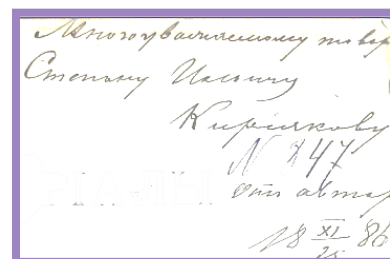 Многоуважаемому товар
Степану Ильичу
Кирьякову
N 247
отъ автор
18 XI 86
25